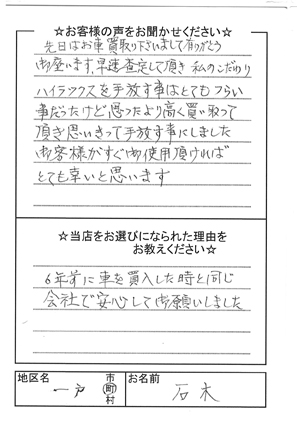 ☆お客様の声をお聞かせください☆
先日はお車買取り下さいまして有りがとう
御座います、早速査定して頂き 私のこだわり
ハイラックスを手放す事はとてもつらい
事だったけど思ったより高く買い取って
頂き思いきって手放す事にしました
御客様がすぐ御使用頂ければ
とても幸いと思います
☆当店をお選びになられた理由を
お教えください☆
6年前に車を買入した時と同じ
会社で安心して御願いしました
地区名 一戸 市町村 お名前 石木